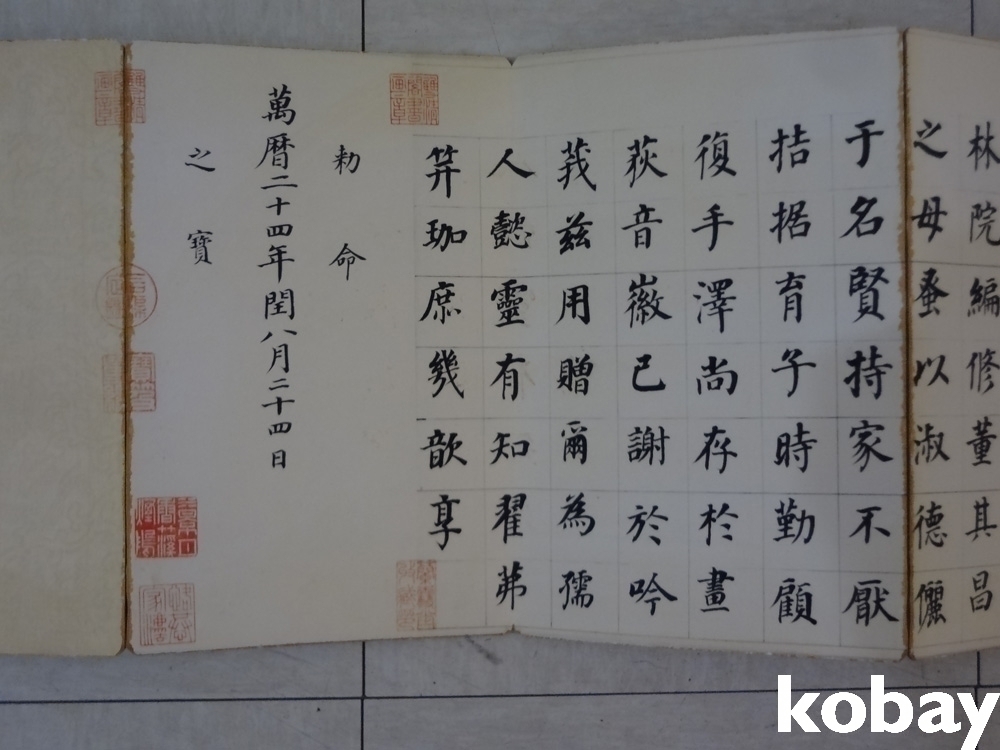 林院編修董其昌
之母蚤以淑德儷
于名賢持家不厭
拮据育子時勤顧
復手澤尚存於畫
荻音徽已謝於吟
莪茲用贈爾為孺
人懿靈有知翟茀
笄珈庶幾歆享
勅命
萬曆二十四年閏八月二十四日
之寶
kobay